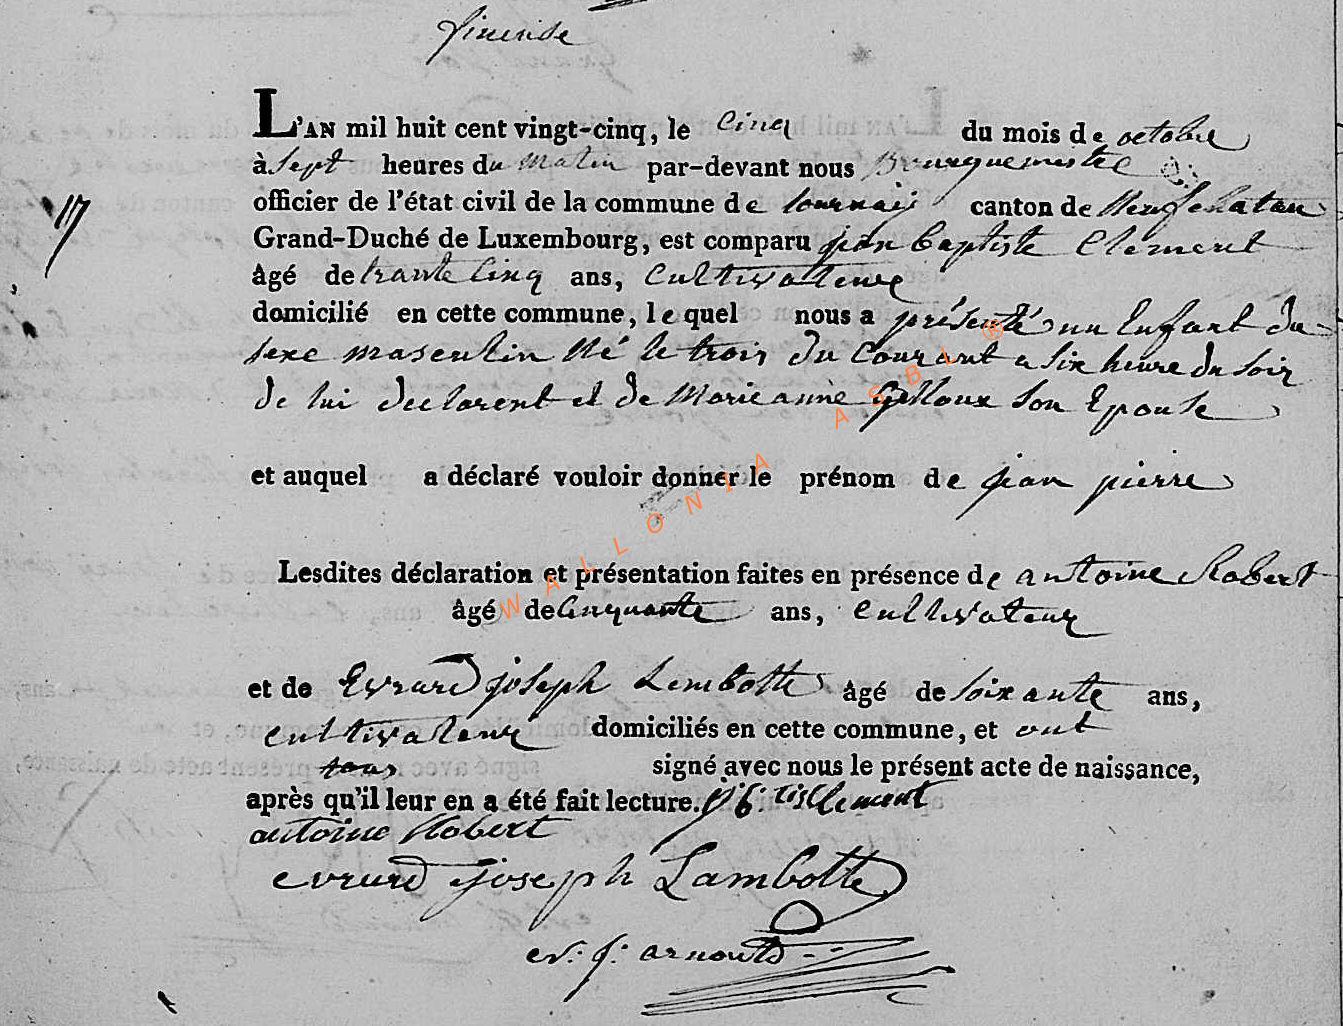 L'AN mil huit cent vingt-cinq, le cinq du mois de octobre
à sept heures du matin par-devant nous Bourquemestre
officier de l'état civil de la commune de tournaij canton de Neufchatau
Grand-Duché de Luxembourg, est comparu jean baptiste Clement
âgé de trante cinq ans, cultivateur
domicilié en cette commune, lequel nous a présenté un Enfant du
sexe masculin Né le trois du Courant a six heure du soir
de lui declarent et de Marie anne Gilloux son Epouse
17
et auquel a déclaré vouloir donner le prénom de jean pierre
Lesdites déclaration et présentation faites en présence de antoine Robert
âgé de cinquante ans, cultivateur
et de Evrard joseph Lambotte âgé de soixante ans,
cultivateur domiciliés en cette commune, et ont
tous signé avec nous le présent acte de naissance,
après qu'il leur en a été fait lecture. j: b:
antoine Robert
evrard joseph Lambotte
ev: j: arnould
WALLONIA ASBL ®